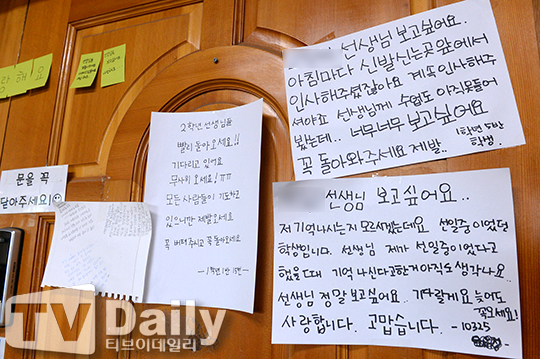 랑해요
문을 꼭
닫아주세요!
2학년 선생님들
빨리 돌아오세요!!
기다리고 있어요
무사히 오세요! ㅠㅠ
모든 사람들이 기도하고
있으니깐 제발오세요
꼭 버텨주시고 꼭 돌아오세요
-1학년 1반
선생님 보고싶어요..
아침마다 신발신는곳앞에서
인사해주셨잖아요 계속인사해주
셔야죠 선생님께 수업도 아직못들어
봤는데.. 너무너무 보고싶어요
꼭 돌아와주세요 제발..
1학년
학생.
선생님 보고싶어요..
저 기억나시는지 모르시겠는데요 선일중이었던
학생입니다. 선생님 제가 선일중이었다고
했을때 기억 나신다고한거 아직도 생각나요..
선생님 정말 보고싶어요.. 기다릴게요 늦어도
꼭오세요!
사랑합니다. 고맙습니다. -10325
TV Daily
티브이데일리